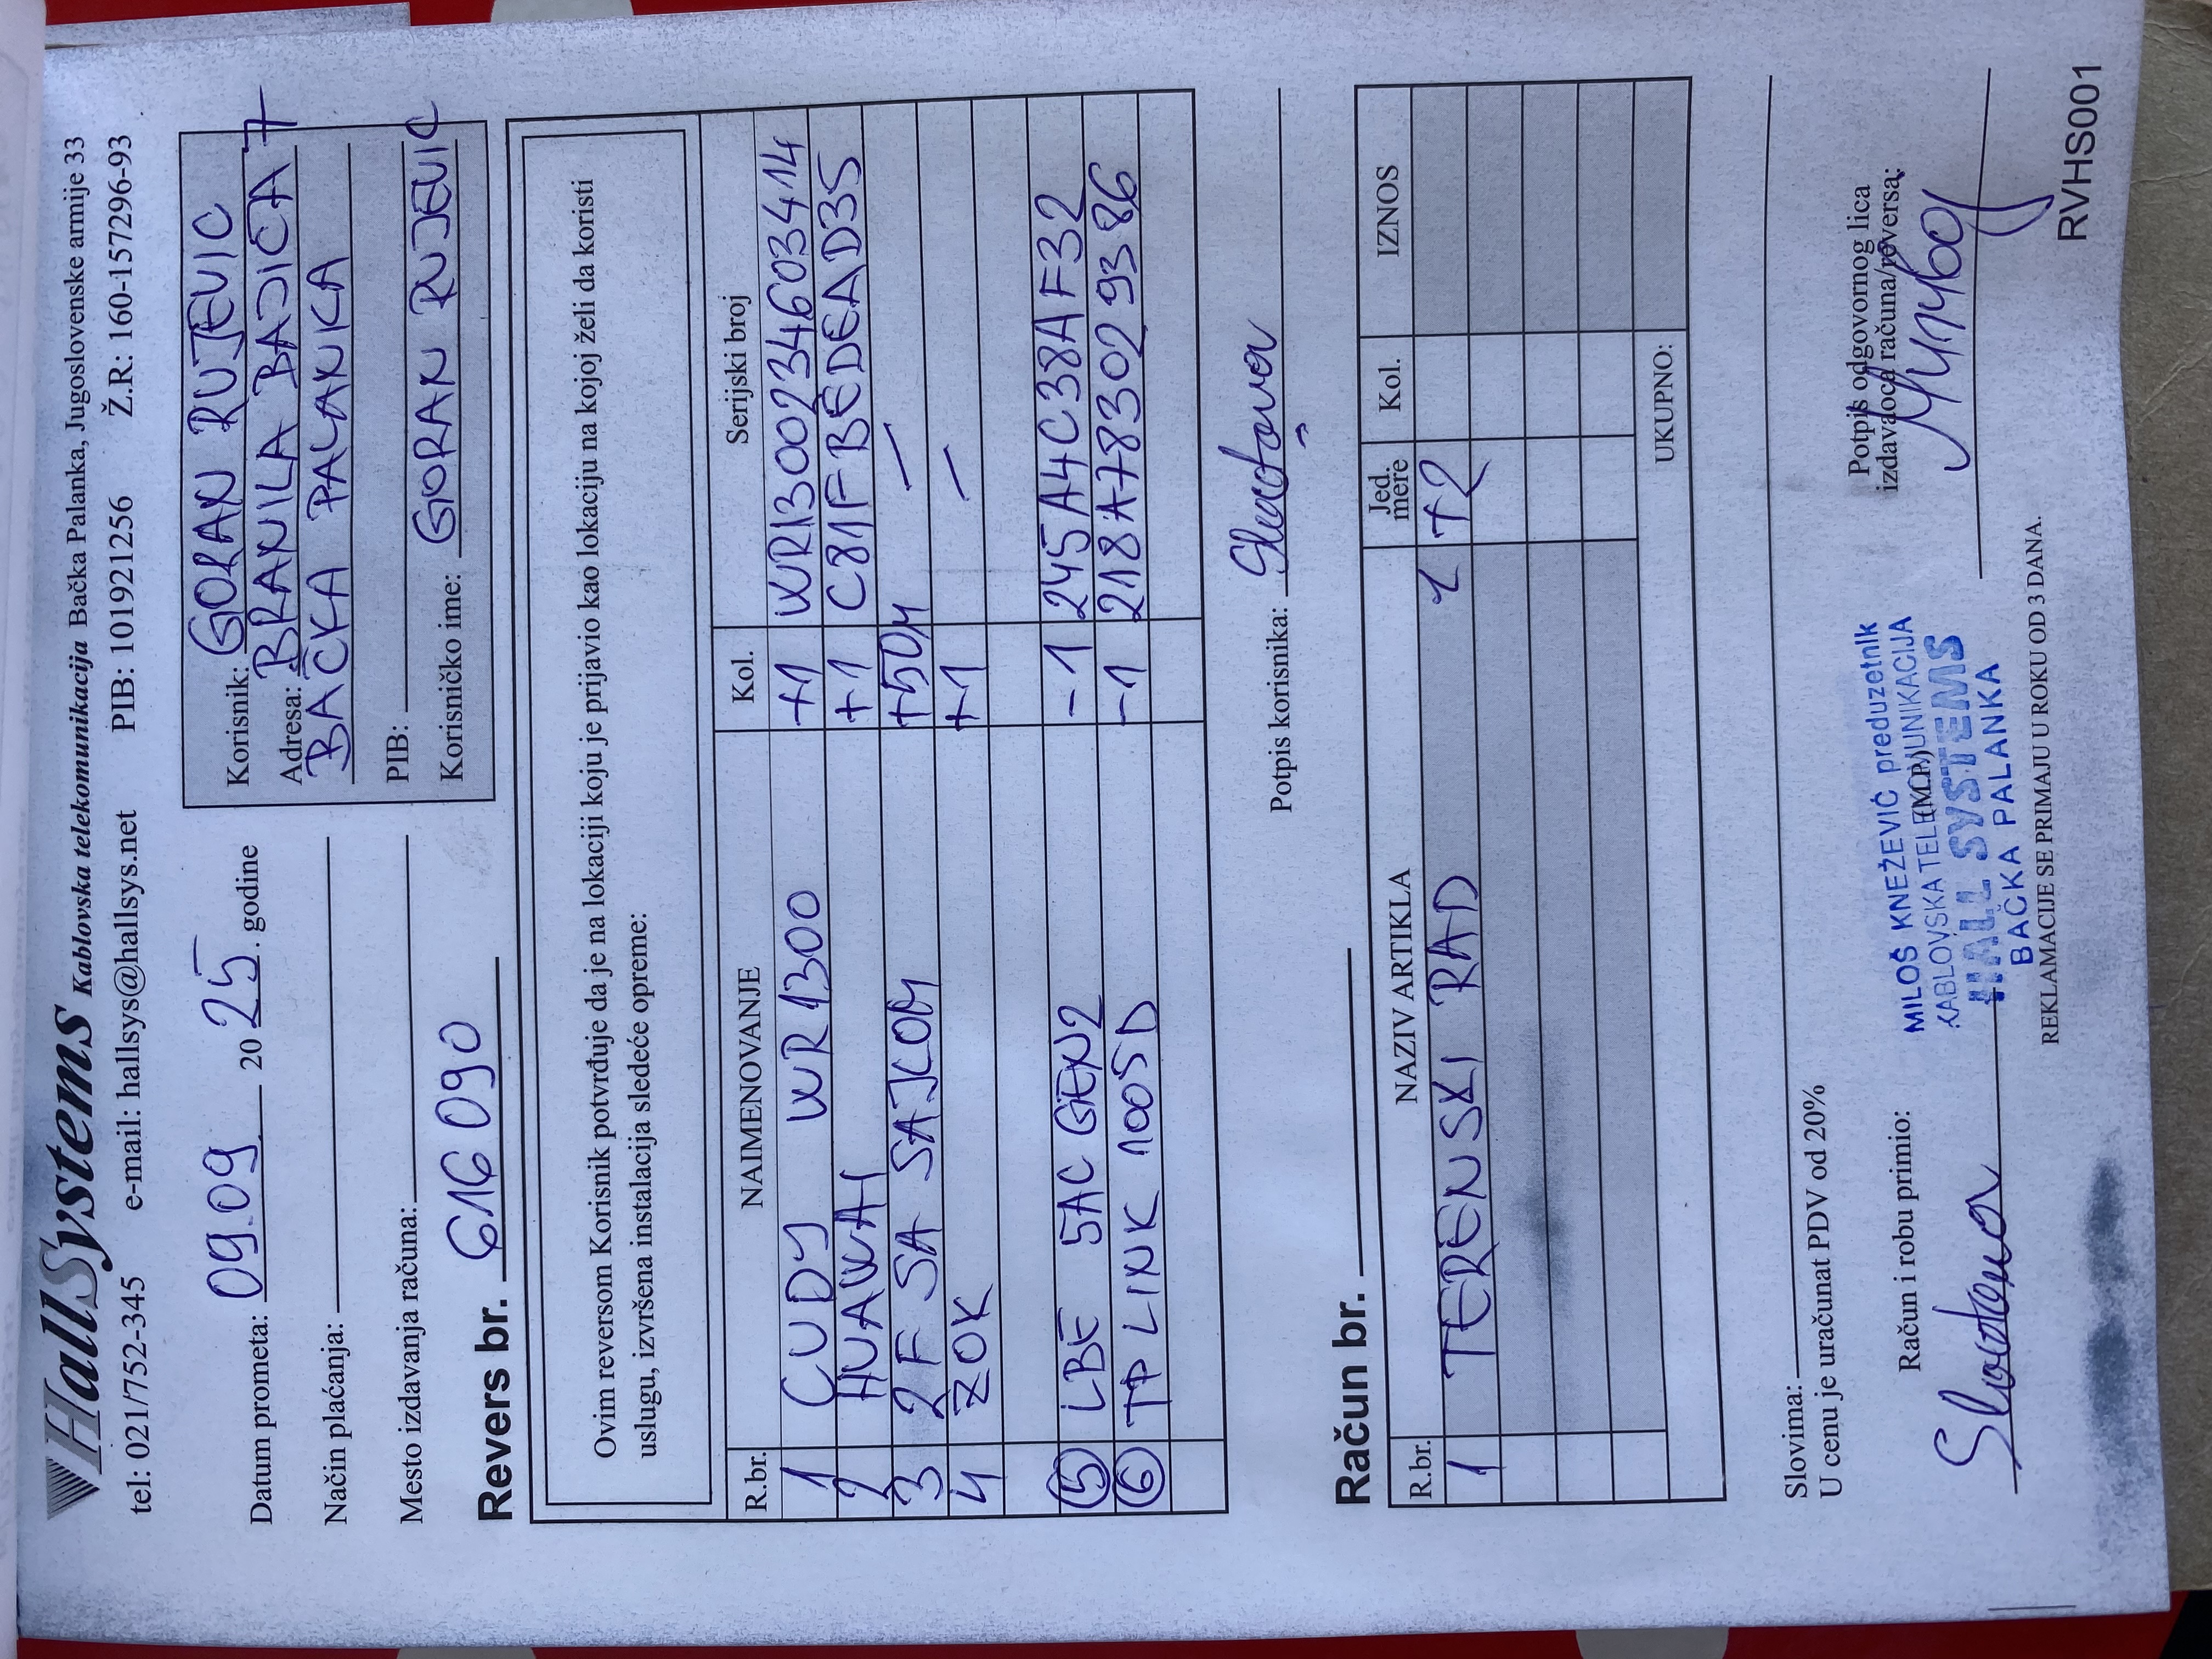 HallSystems Kablovska telekomunikacija Bačka Palanka, Jugoslovenske armije 33
tel: 021/752-345 e-mail: hallsys@hallsys.net PIB: 101921256 Ž.R: 160-157296-93
Datum prometa: 09.09 20 25. godine
Način plaćanja:
Mesto izdavanja računa:
Korisnik: GORAN RUJEVIC
Adresa: BRANILA BAJICA 7
BAČKA PALANKA
PIB:
Korisničko ime: GORAN RUJEVIC
Revers br. 616090
Ovim reversom Korisnik potvrđuje da je na lokaciji koju je prijavio kao lokaciju na kojoj želi da koristi
uslugu, izvršena instalacija sledeće opreme:
R.br. NAIMENOVANJE Kol. Serijski broj
1 CUDY WR1300 +1 WR1300234603414
2 HUAWAI +1 C81FBEDEAD35
3 2F SA SAJLOM +50M —
4 ZOK +1 —
5 LBE 5AC GEN2 -1 245A4C38AF32
6 TP LINK 1005D -1 218A783029386
Potpis korisnika:
Račun br.
R.br. NAZIV ARTIKLA Jed. mere Kol. IZNOS
1 TERENSKI RAD T2
UKUPNO:
Slovima:
U cenu je uračunat PDV od 20%
Račun i robu primio:
(M.P.)
MILOŠ KNEŽEVIĆ preduzetnik
KABLOVSKA TELEKOMUNIKACIJA
HALL SYSTEMS
BAČKA PALANKA
Potpis odgovornog lica
izdavaoca računa/reversa:
REKLAMACIJE SE PRIMAJU U ROKU OD 3 DANA.
RVHS001